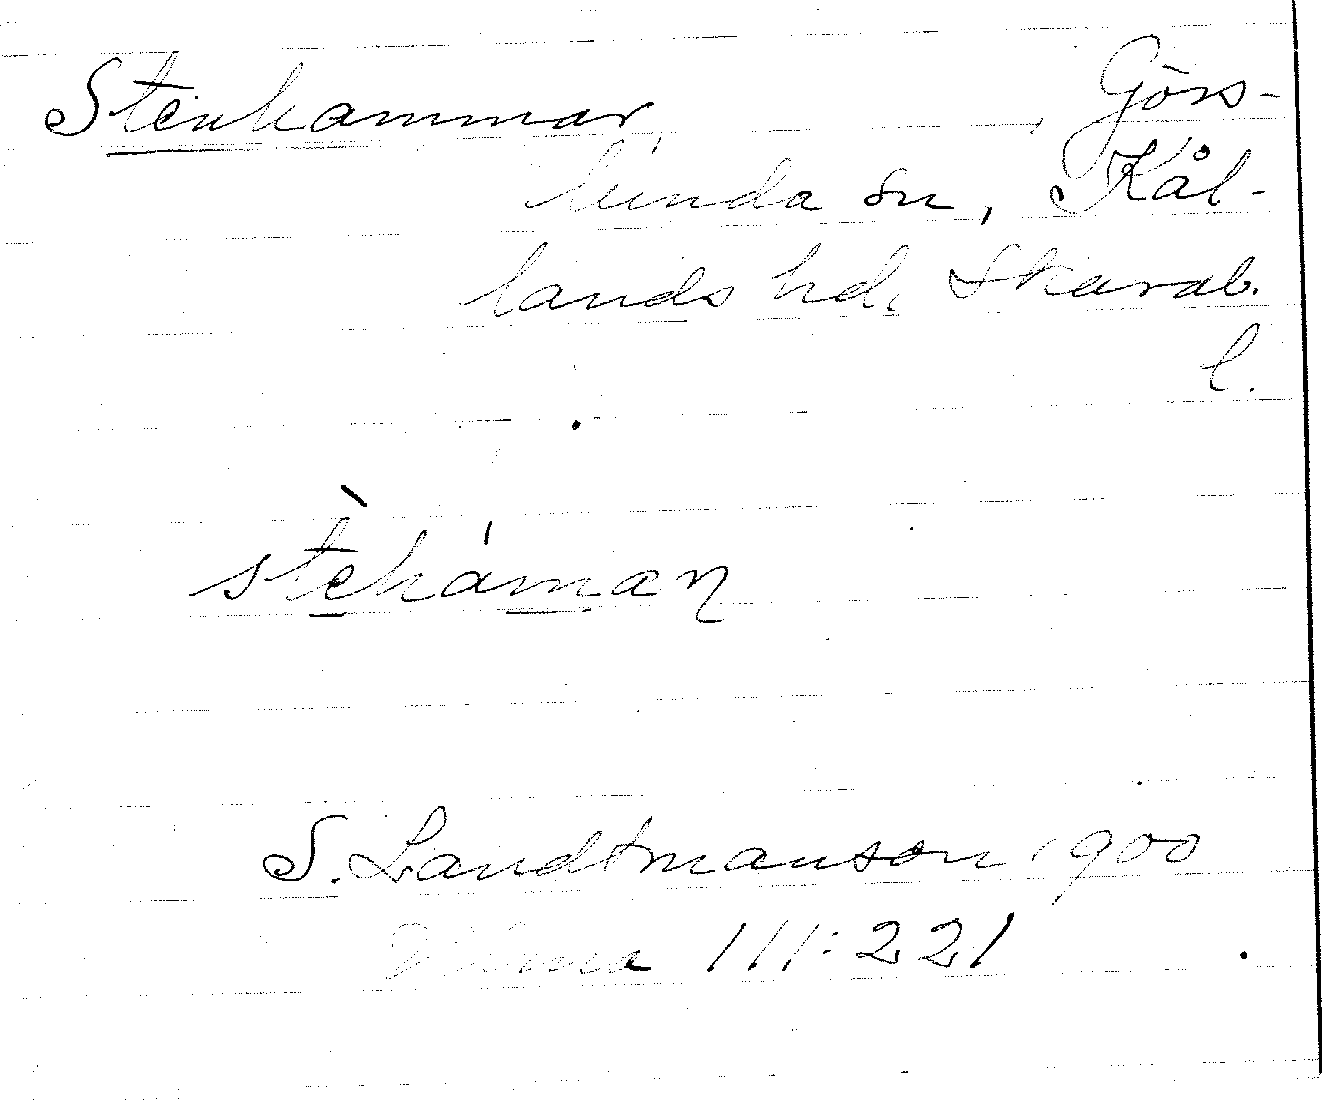 Stenhammar, Görs-
lunda sn, Kål-
lands hd, Skarab.
l.
stèháman
S. Landtmanson 1900
111:221